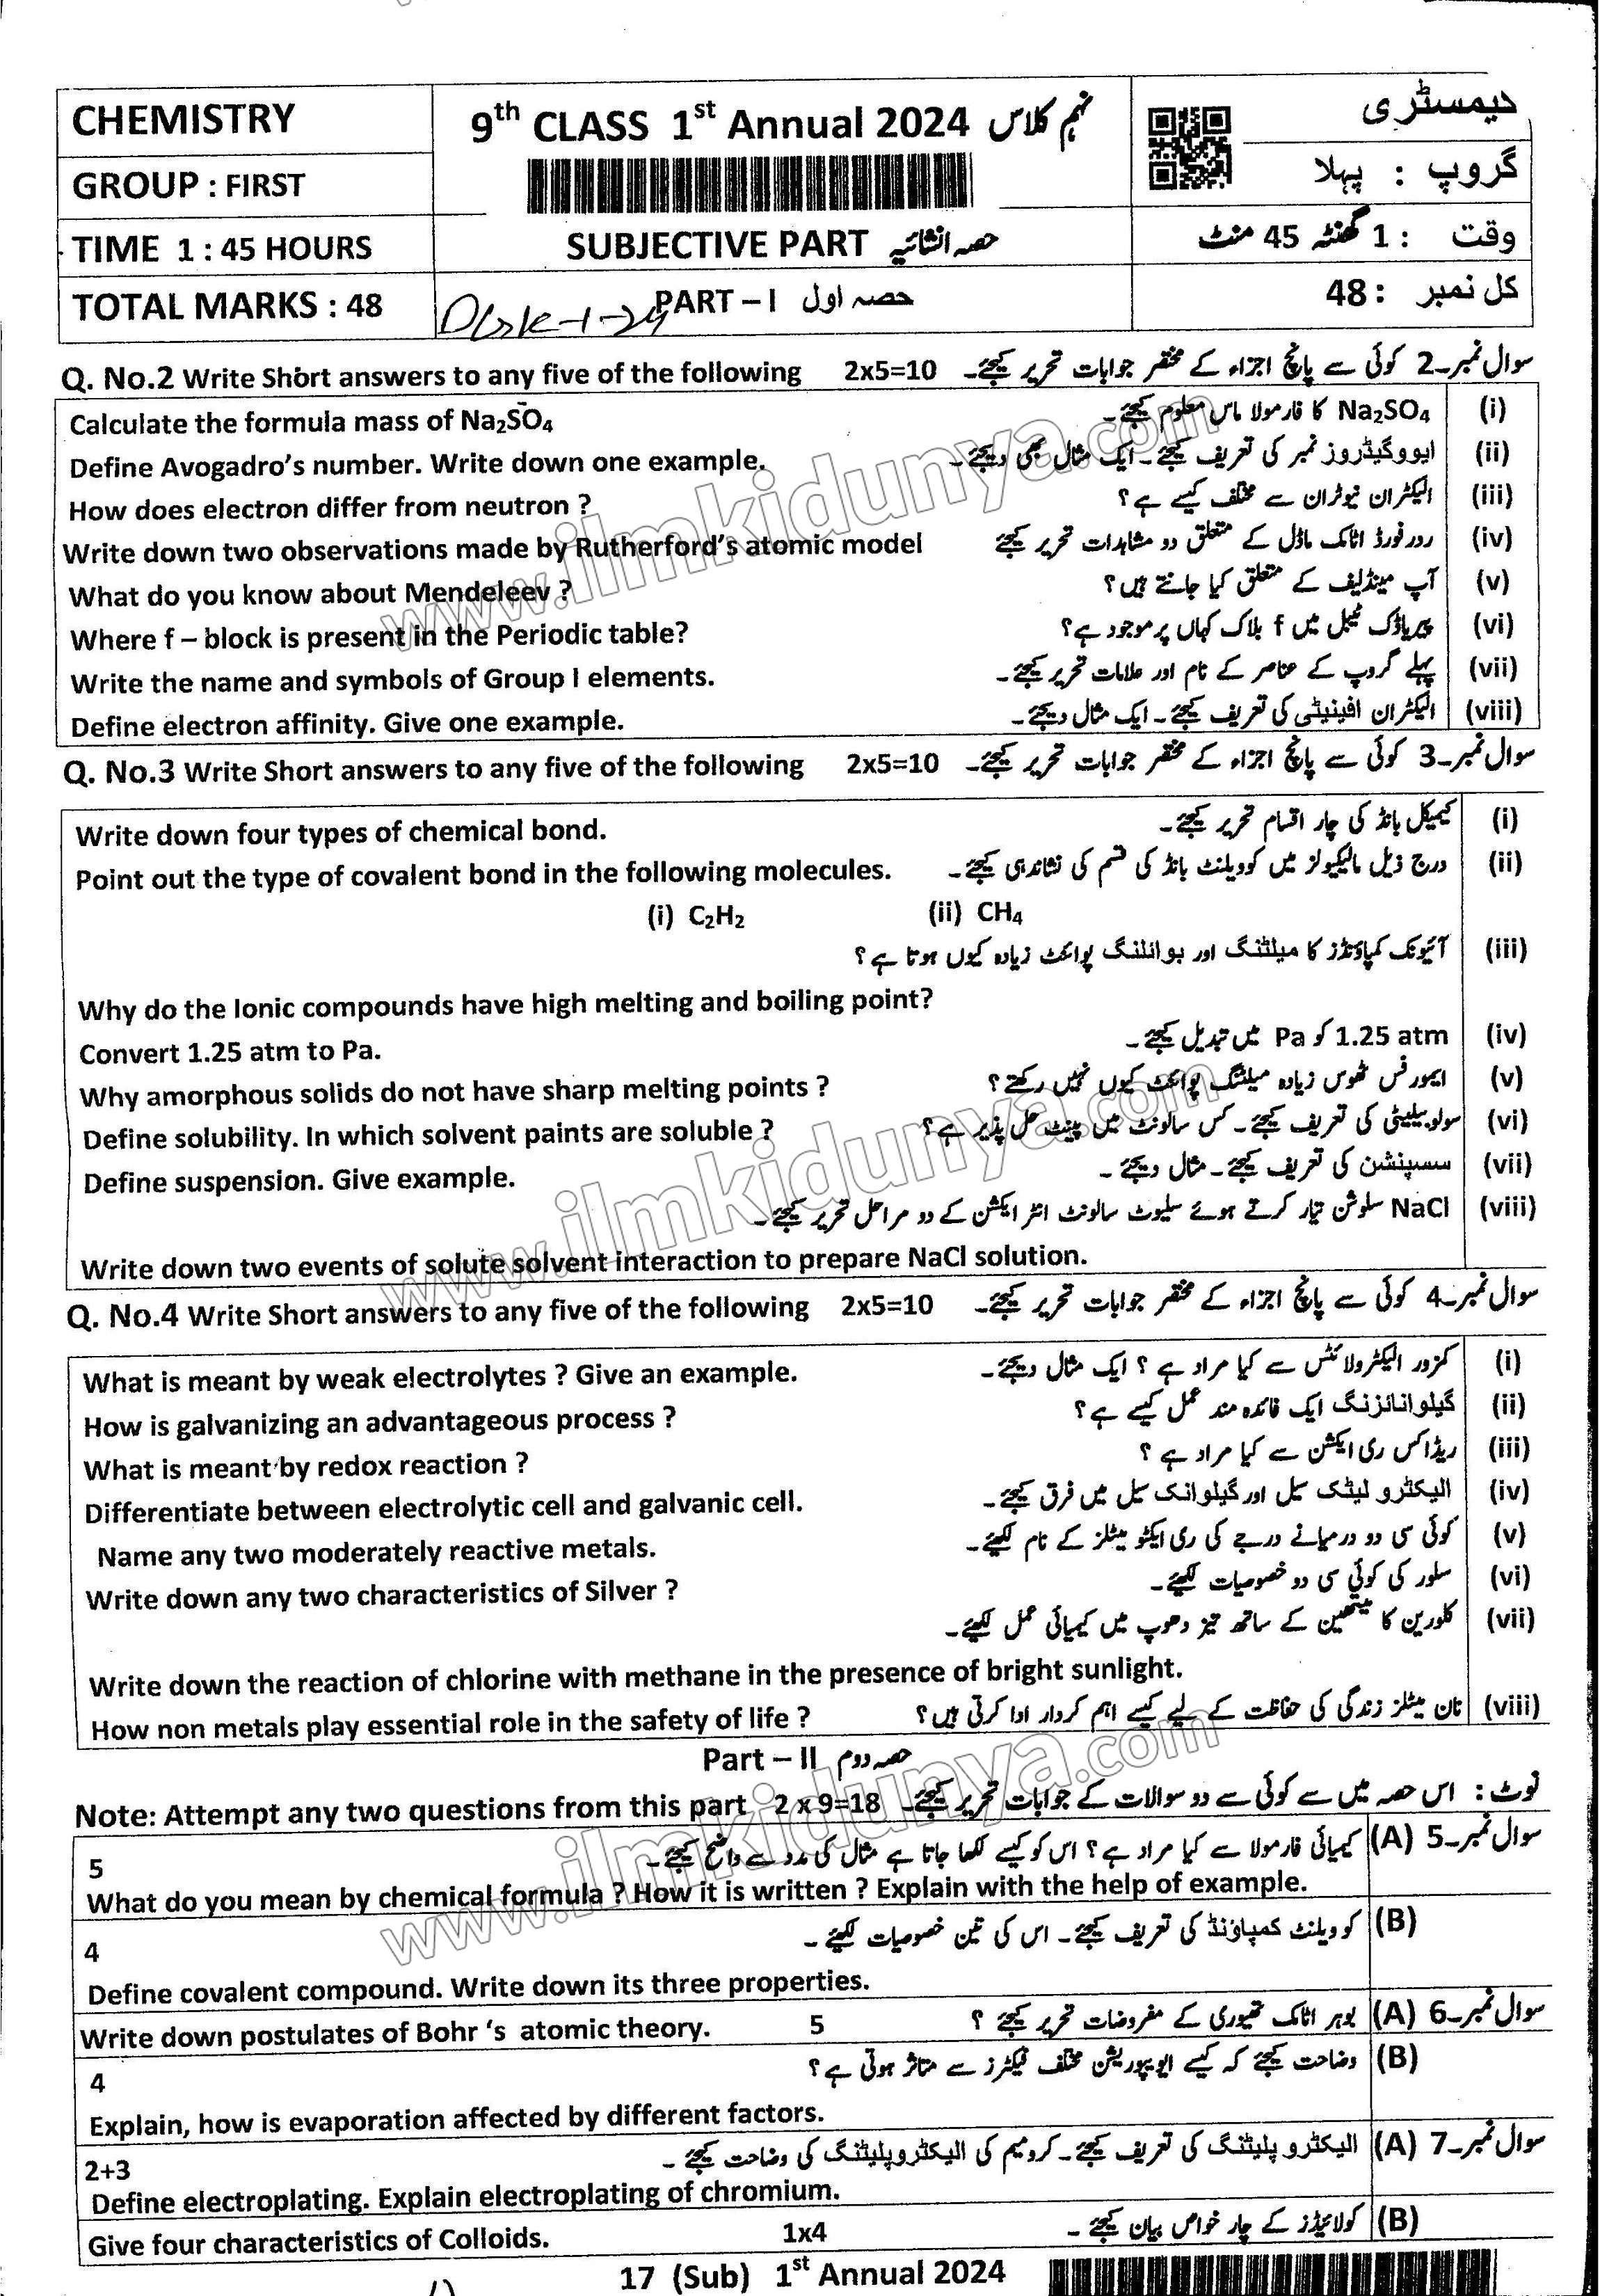 CHEMISTRY
9th CLASS 1st Annual 2024 نہم کلاس
کیمسٹری
GROUP : FIRST
گروپ : پہلا
TIME 1 : 45 HOURS
SUBJECTIVE PART حصہ انشائیہ
وقت : 1 گھنٹہ 45 منٹ
TOTAL MARKS : 48
PART – I حصہ اول
کل نمبر : 48
Q. No.2 Write Short answers to any five of the following 2x5=10 سوال نمبر۔2 کوئی سے پانچ اجزاء کے مختصر جوابات تحریر کیجئے۔
Calculate the formula mass of Na2SO4 Na2SO4 کا فارمولا ماس معلوم کیجئے۔ (i)
Define Avogadro's number. Write down one example. ایووگیڈروز نمبر کی تعریف کیجئے۔ ایک مثال بھی دیجئے۔ (ii)
How does electron differ from neutron ? الیکٹران نیوٹران سے مختلف کیسے ہے؟ (iii)
Write down two observations made by Rutherford's atomic model ردرفورڈ اٹامک ماڈل کے متعلق دو مشاہدات تحریر کیجئے (iv)
What do you know about Mendeleev ? آپ مینڈلیف کے متعلق کیا جانتے ہیں؟ (v)
Where f – block is present in the Periodic table? پیریاڈک ٹیبل میں f بلاک کہاں پر موجود ہے؟ (vi)
Write the name and symbols of Group I elements. پہلے گروپ کے عناصر کے نام اور علامات تحریر کیجئے۔ (vii)
Define electron affinity. Give one example. الیکٹران افینیٹی کی تعریف کیجئے۔ ایک مثال دیجئے۔ (viii)
Q. No.3 Write Short answers to any five of the following 2x5=10 سوال نمبر۔3 کوئی سے پانچ اجزاء کے مختصر جوابات تحریر کیجئے۔
Write down four types of chemical bond. کیمیکل بانڈ کی چار اقسام تحریر کیجئے۔ (i)
Point out the type of covalent bond in the following molecules. درج ذیل مالیکیولز میں کوویلنٹ بانڈ کی قسم کی نشاندہی کیجئے۔ (ii)
(i) C2H2 (ii) CH4
آئیونک کمپاؤنڈز کا میلٹنگ اور بوائلنگ پوائنٹ زیادہ کیوں ہوتا ہے؟ (iii)
Why do the Ionic compounds have high melting and boiling point?
Convert 1.25 atm to Pa. 1.25 atm کو Pa میں تبدیل کیجئے۔ (iv)
Why amorphous solids do not have sharp melting points ? ایمورفس ٹھوس زیادہ میلٹنگ پوائنٹ کیوں نہیں رکھتے؟ (v)
Define solubility. In which solvent paints are soluble ? سولوبیلیٹی کی تعریف کیجئے۔ کس سالونٹ میں پینٹ حل پذیر ہے؟ (vi)
Define suspension. Give example. سسپنشن کی تعریف کیجئے۔ مثال دیجئے۔ (vii)
NaCl سلوشن تیار کرتے ہوئے سلیوٹ سالونٹ انٹر ایکشن کے دو مراحل تحریر کیجئے۔ (viii)
Write down two events of solute solvent interaction to prepare NaCl solution.
Q. No.4 Write Short answers to any five of the following 2x5=10 سوال نمبر۔4 کوئی سے پانچ اجزاء کے مختصر جوابات تحریر کیجئے۔
What is meant by weak electrolytes ? Give an example. کمزور الیکٹرولائٹس سے کیا مراد ہے ؟ ایک مثال دیجئے۔ (i)
How is galvanizing an advantageous process ? گیلوانائزنگ ایک فائدہ مند عمل کیسے ہے؟ (ii)
What is meant by redox reaction ? ریڈاکس ری ایکشن سے کیا مراد ہے ؟ (iii)
Differentiate between electrolytic cell and galvanic cell. الیکٹرو لیٹک سیل اور گیلوانک سیل میں فرق کیجئے۔ (iv)
Name any two moderately reactive metals. کوئی سی دو درمیانے درجے کی ری ایکٹو میٹلز کے نام لکھیئے۔ (v)
Write down any two characteristics of Silver ? سلور کی کوئی سی دو خصوصیات لکھیئے۔ (vi)
کلورین کا میتھین کے ساتھ تیز دھوپ میں کیمیائی عمل لکھیئے۔ (vii)
Write down the reaction of chlorine with methane in the presence of bright sunlight.
How non metals play essential role in the safety of life ? نان میٹلز زندگی کی حفاظت کے لیے کیسے اہم کردار ادا کرتی ہیں؟ (viii)
Part – II حصہ دوم
Note: Attempt any two questions from this part 2 x 9=18 نوٹ : اس حصہ میں سے کوئی سے دو سوالات کے جوابات تحریر کیجئے۔
5 کیمیائی فارمولا سے کیا مراد ہے؟ اس کو کیسے لکھا جاتا ہے مثال کی مدد سے واضح کیجئے۔ (A) سوال نمبر۔5
What do you mean by chemical formula ? How it is written ? Explain with the help of example.
4 کوویلنٹ کمپاؤنڈ کی تعریف کیجئے۔ اس کی تین خصوصیات لکھیئے۔ (B)
Define covalent compound. Write down its three properties.
Write down postulates of Bohr 's atomic theory. 5 بوہر اٹامک تھیوری کے مفروضات تحریر کیجئے ؟ (A) سوال نمبر۔6
4 وضاحت کیجئے کہ کیسے ایوپوریشن مختلف فیکٹرز سے متاثر ہوتی ہے؟ (B)
Explain, how is evaporation affected by different factors.
2+3 الیکٹرو پلیٹنگ کی تعریف کیجئے۔ کرومیم کی الیکٹروپلیٹنگ کی وضاحت کیجئے۔ (A) سوال نمبر۔7
Define electroplating. Explain electroplating of chromium.
Give four characteristics of Colloids. 1x4 کولائیڈز کے چار خواص بیان کیجئے۔ (B)
17 (Sub) 1st Annual 2024
www.ilmkidunya.com
www.ilmkidunya.com
www.ilmkidunya.com